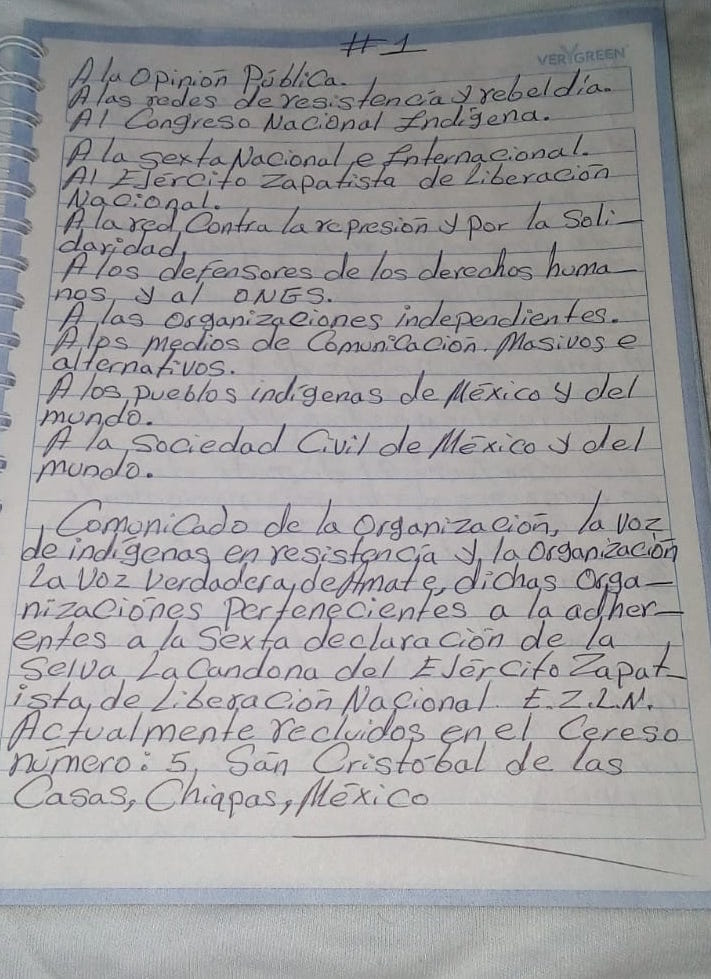 #1
VERYGREEN
A la Opinión Pública.
A las redes de resistencia y rebeldía.
Al Congreso Nacional Indígena.
A la sexta Nacional e Internacional.
Al Ejército Zapatista de Liberación
Nacional.
A la red Contra la represión y por la Soli-
daridad,
A los defensores de los derechos huma-
nos, y al ONGS.
A las Organizaciones independientes.
A los medios de Comunicación. Masivos e
alternativos.
A los pueblos indígenas de México y del
mundo.
A la sociedad Civil de México y del
mundo.
Comunicado de la Organización, la voz
de indígenas en resistencia y, la Organización
La Voz Verdadera, del Amate, dichas Orga-
nizaciones Pertenecientes a la adher-
entes a la Sexta declaración de la
Selva, La Candona del Ejército Zapat-
ista, de Liberación Nacional. E.Z.L.N.
Actualmente recluidos en el Cereso
número: 5, San Cristóbal de las
Casas, Chiapas, México